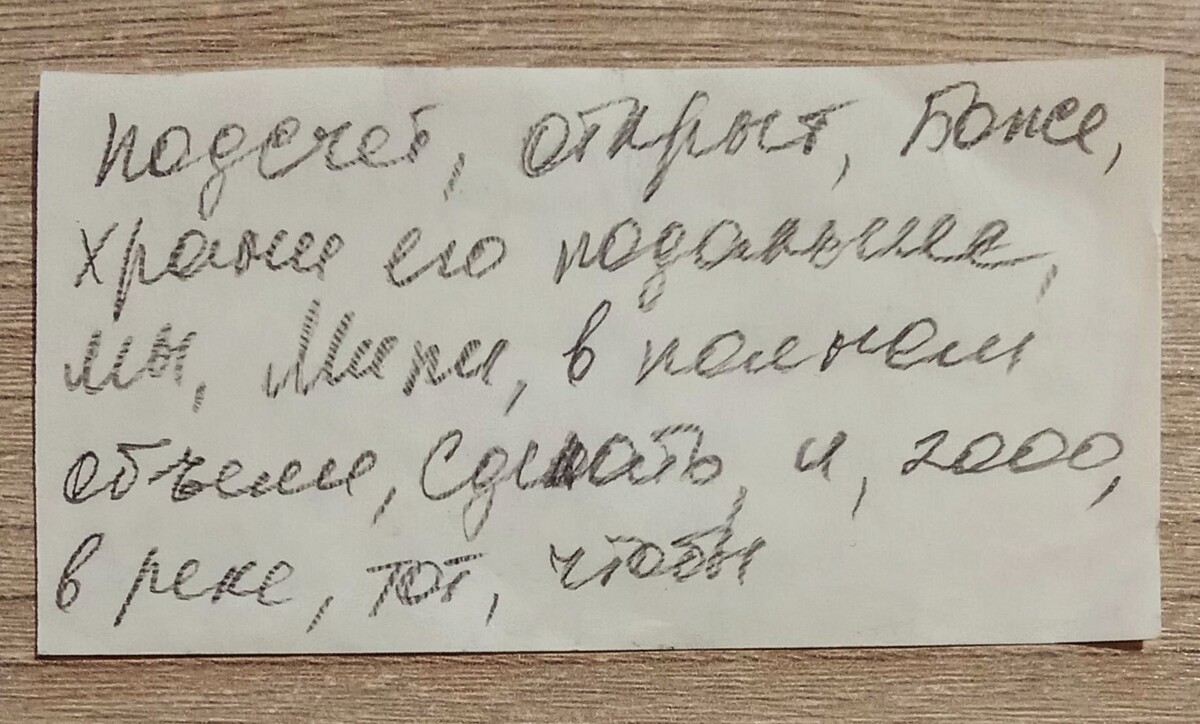 подсчет, открыт, Боже,
храни его подальше,
мы, Мири, в полном
объеме, сделать, и, 2000,
в реке, тот, чтобы